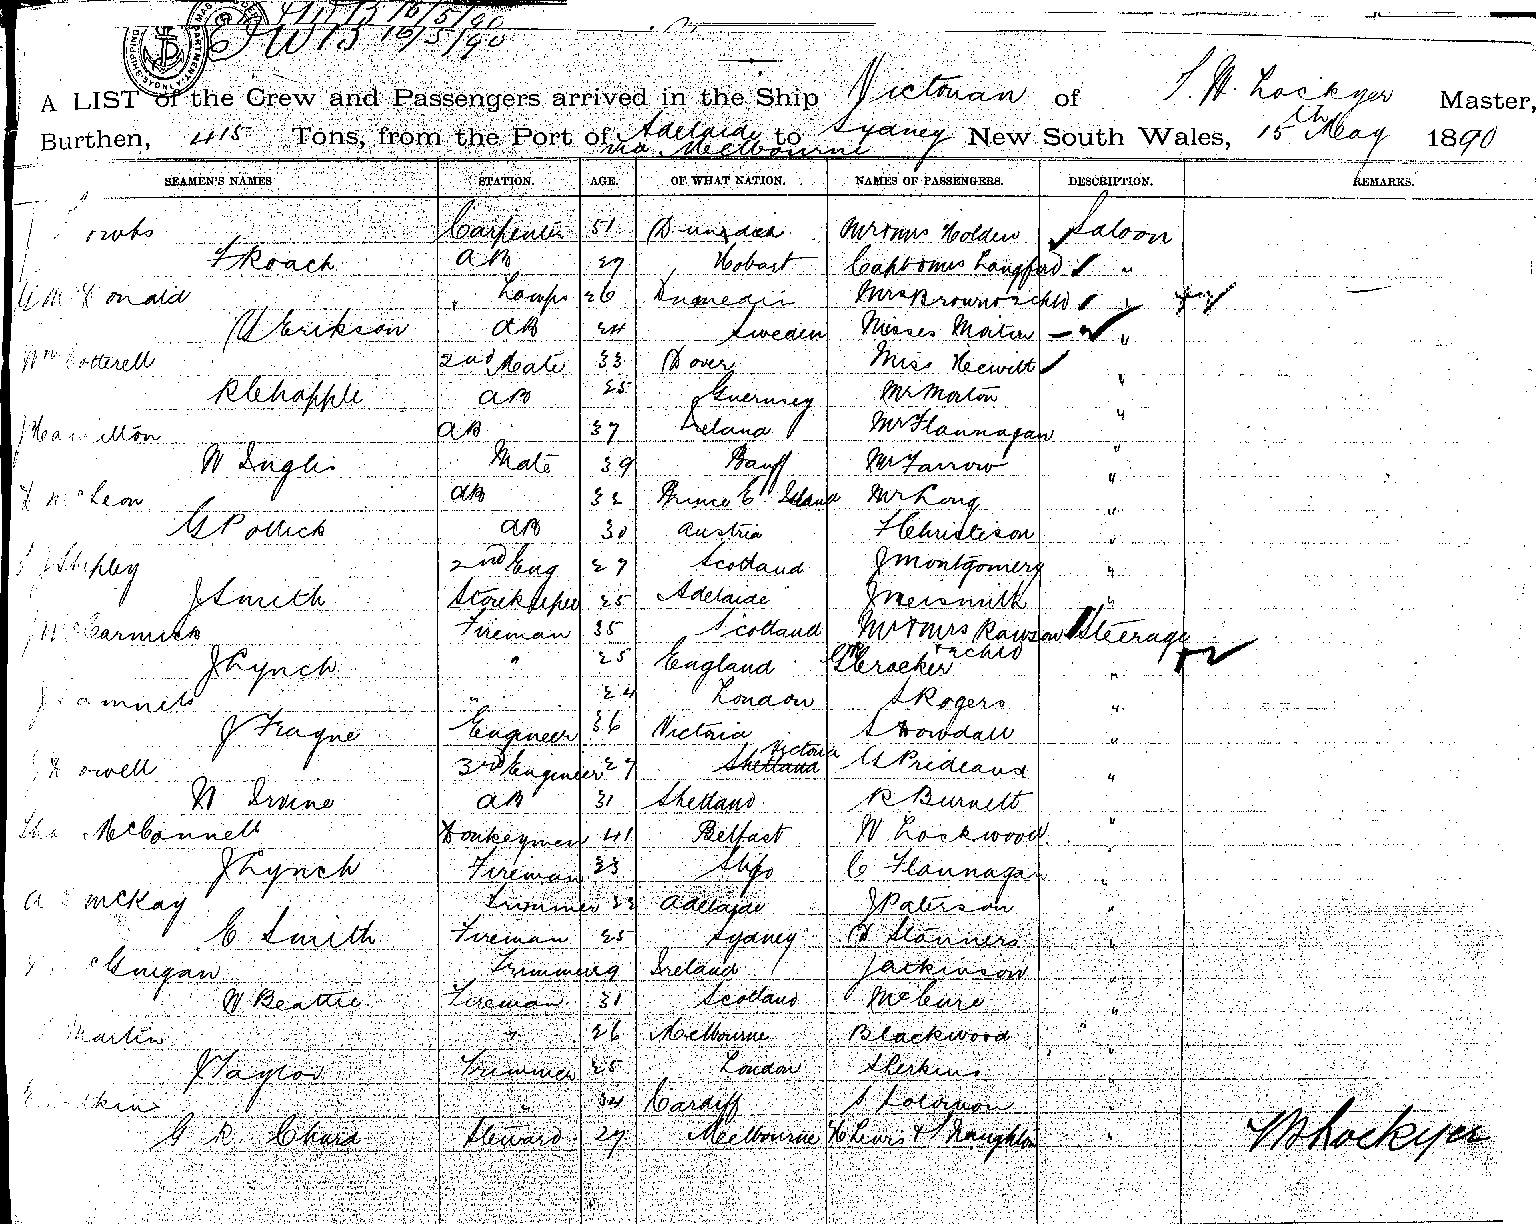 16/5/90
A LIST of the Crew and Passengers arrived in the Ship Victorian of Lockyer Master,
Burthen, 415 Tons, from the Port of Adelaide to Sydney New South Wales, 15th May 1890
via Melbourne
SEAMEN'S NAMES STATION. AGE. OF WHAT NATION. NAMES OF PASSENGERS. DESCRIPTION. REMARKS.
Carpenter 51 Dundee Mr & Mrs Holden Saloon
F Roach AB 27 Hobart Capt & Mrs Langford "
Donald " Lamps 26 Dunedin Mrs Brown & child "
Erikson AB 24 Sweden Misses Martin "
Wm Cotterell 2nd Mate 33 Dover Miss Hewitt "
R Chapple AB 25 Guernsey Mr Morton "
J Hamilton AB 37 Ireland Mr Flannagan "
W Inglis Mate 39 Banff Mr Farrow "
McLeon AB 32 Prince E Island Mr Long "
G Pollick AB 30 Austria F Christison "
Shipley 2nd Eng 27 Scotland J Montgomery "
J Smith Storekeeper 25 Adelaide J Neismith "
J McCarmick Fireman 35 Scotland Mr & Mrs Rawson Steerage
& child
J Lynch " 25 England Crocker "
" 24 London S Rogers "
J Trayne Engineer 36 Victoria S Dowdall "
Victoria
3rd Engineer 27 Shetland G Prideaux "
W Irvine AB 31 Shetland R Burnett "
McConnell Donkeyman 41 Belfast W Lockwood "
J Lynch Fireman 23 Sligo C Flannagan "
McKay Trimmer 32 Adelaide J Paterson "
C Smith Fireman 25 Sydney D Stanners "
Guigan Trimmer 29 Ireland J Atkinson "
W Beattie Fireman 31 Scotland McClure "
Martin " 26 Melbourne Blackwood "
J Taylor Trimmer 25 London S Perkins "
" 34 Cardiff S Solomon "
G R Chard Steward 27 Melbourne Lewis & Naughton "
Lockyer